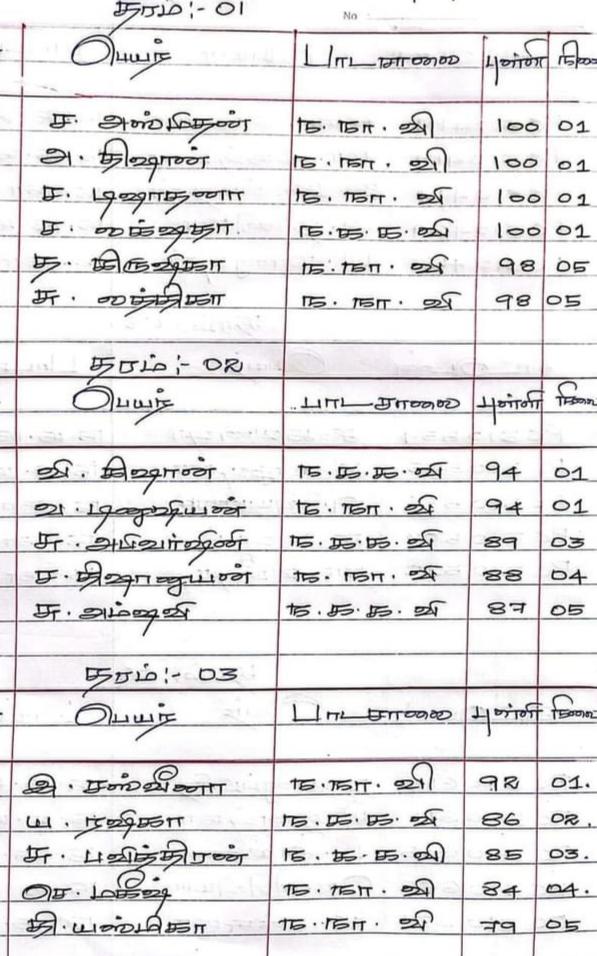 தரம் :- 01
No
பெயர் பாடசாலை புள்ளி நிலை
ச. அஸ்மிதன் ந. நா. வி 100 01
அ. திஷான் ந. நா. வி 100 01
ச. டிஷாதனா ந. நா. வி 100 01
ச. லக்ஷிதா ந. க. க. வி 100 01
த. கிருஷிகா ந. நா. வி 98 05
சு. லக்திகா ந. நா. வி 98 05
தரம் :- 02
பெயர் பாடசாலை புள்ளி நிலை
வி. கிஷான் ந. க. க. வி 94 01
வ. டினுஷியன் ந. நா. வி 94 01
சு. அபிவர்ஷினி ந. க. க. வி 89 03
ச. திஷானுயன் ந. நா. வி 88 04
சு. அம்ஷவி ந. க. க. வி 87 05
தரம் :- 03
பெயர் பாடசாலை புள்ளி நிலை
இ. சஸ்வீனா ந. நா. வி 92 01.
ய. ரஷிகா ந. க. க. வி 86 02.
சு. பவித்திரன் ந. க. க. வி 85 03.
செ. மகிஷ் ந. நா. வி 84 04.
தி. யஸ்மிகா ந. நா. வி 79 05